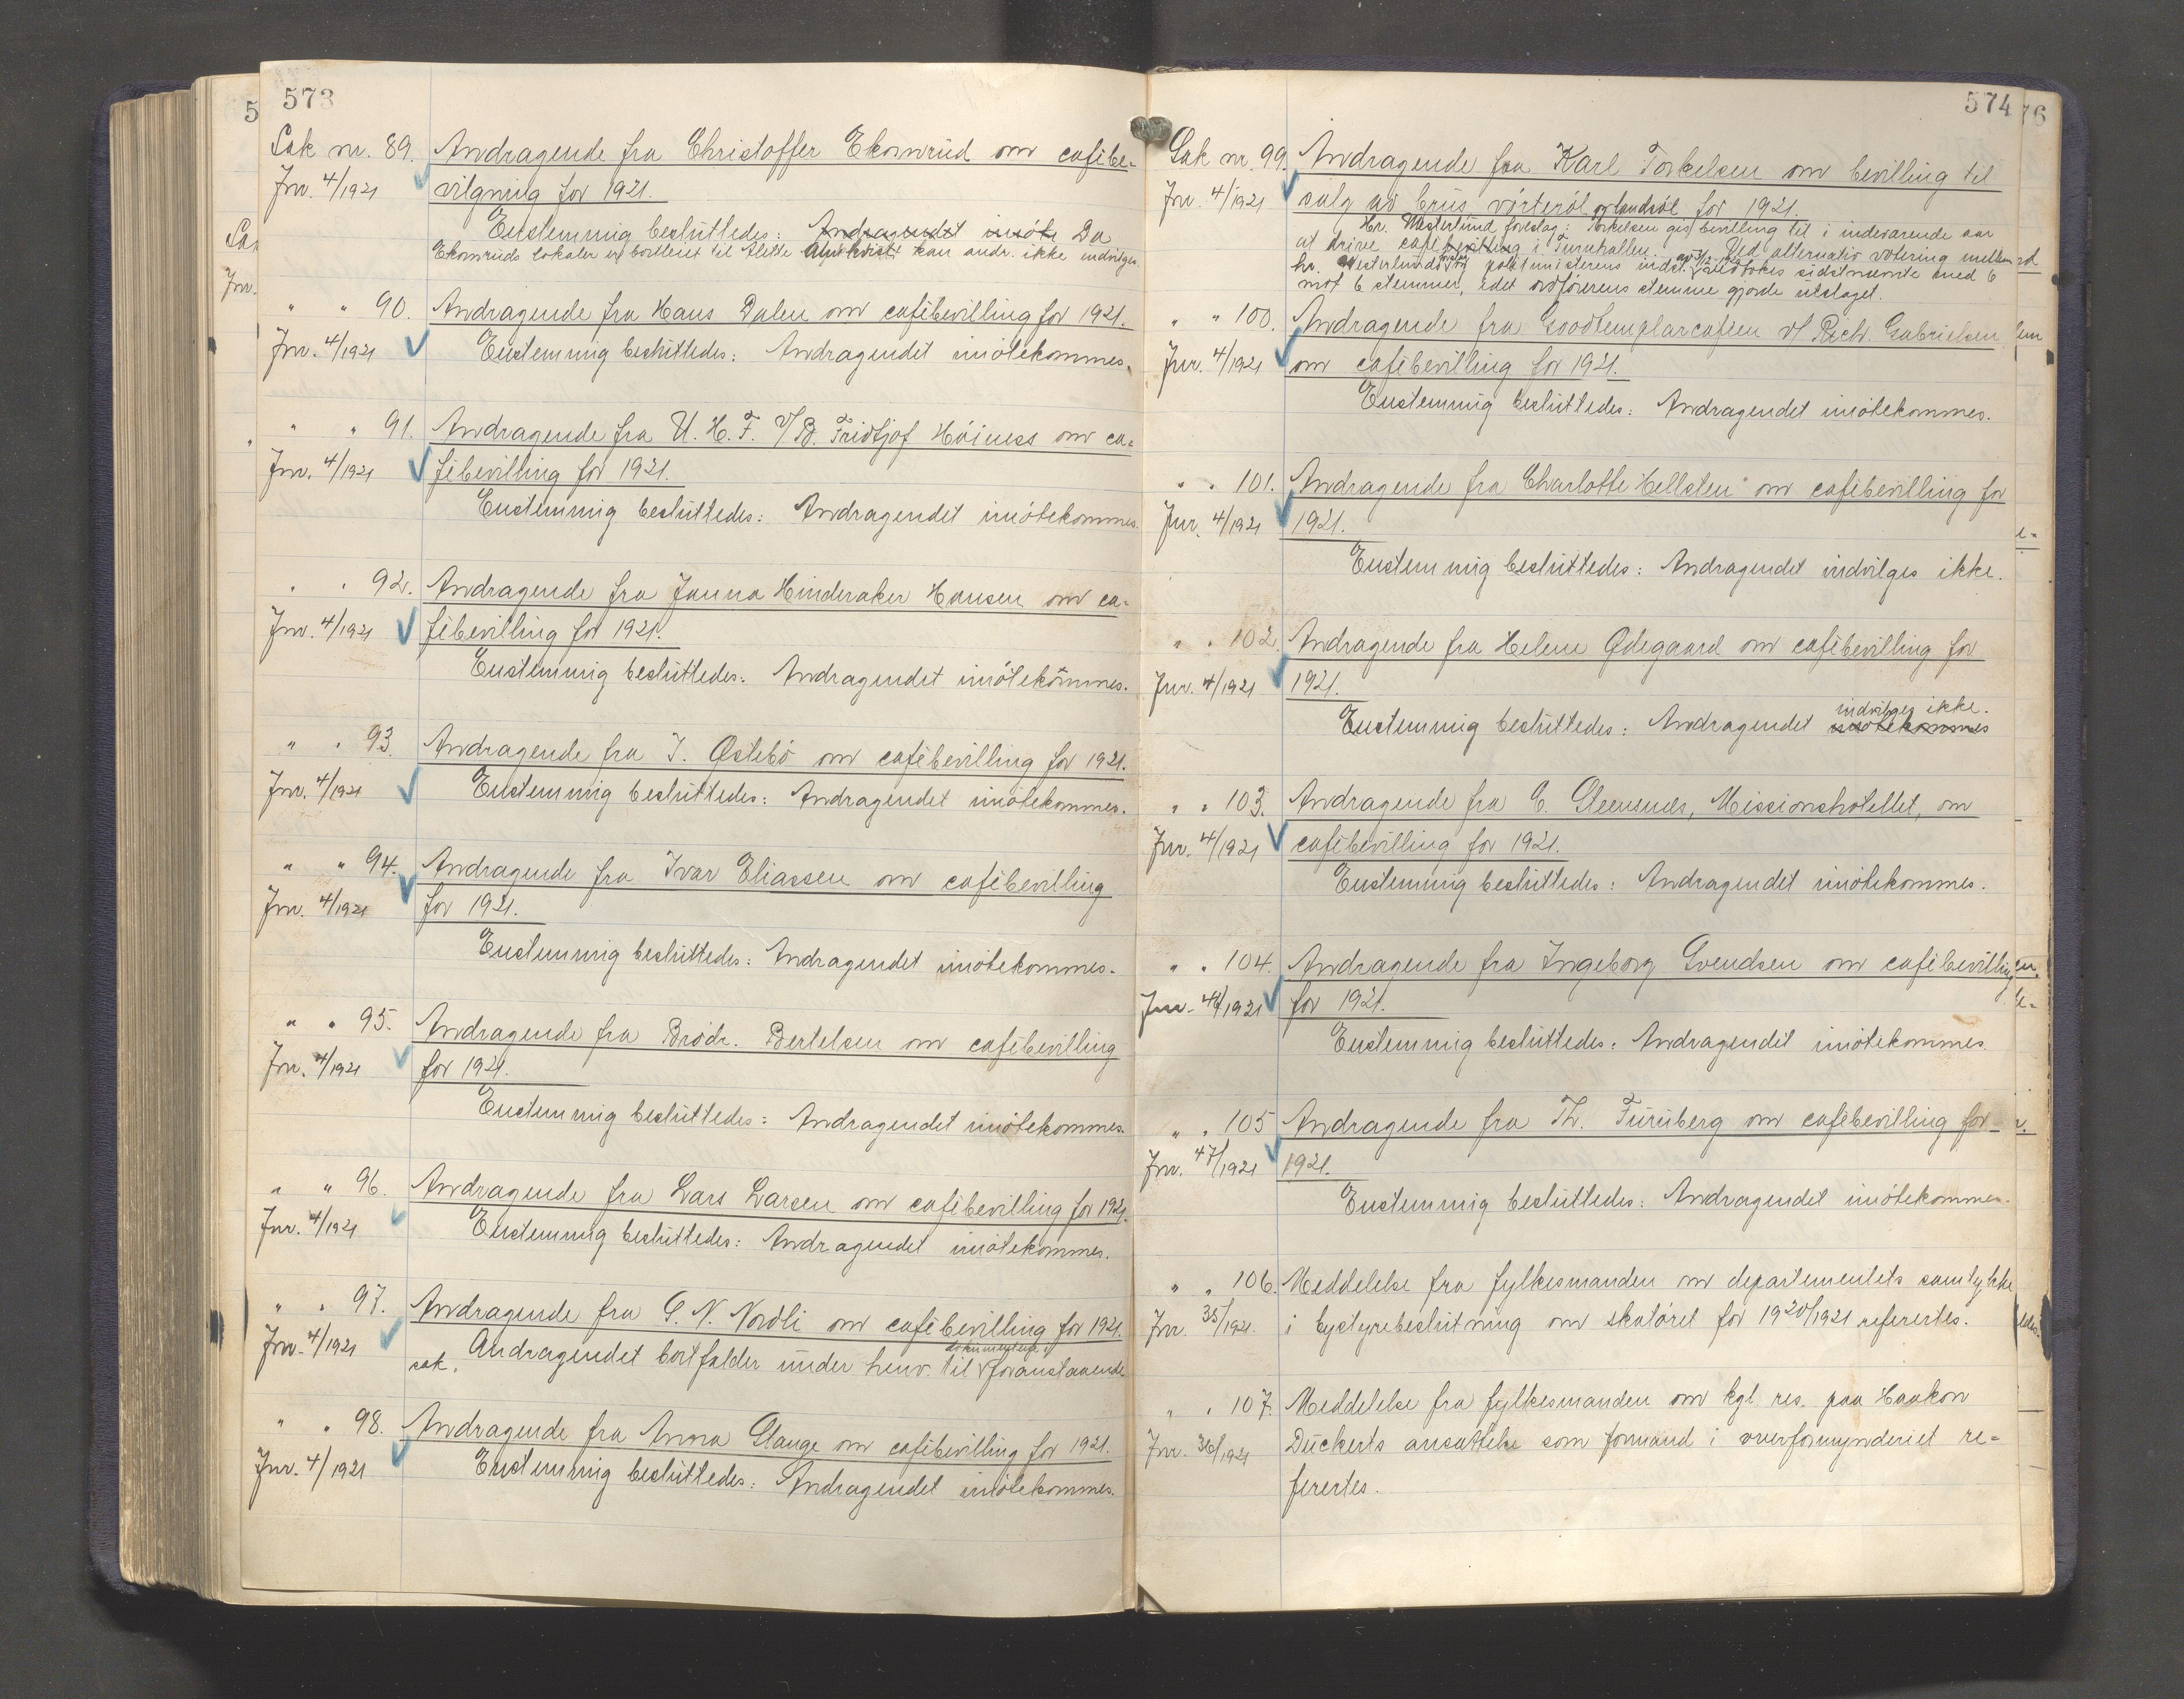 573
Sak nr. 89. Andragende fra Christoffer Ekornrud om cafébe-
Jnr. 4/1921 vilgning for 1921.
Enstemmig besluttedes: Andragendet imøte Da
Ekornruds lokaler er bortleiet til kan andr. ikke indvilges.
" " 90. Andragende fra Hans Dalen om cafébevilling for 1921.
Jnr. 4/1921 Enstemmig besluttedes: Andragendet imøtekommes.
" " 91. Andragende fra U. H. F. v/ B. Fridtjof Höiness om ca-
Jnr. 4/1921 fébevilling for 1921.
Enstemmig besluttedes: Andragendet imøtekommes.
" " 92. Andragende fra Janna Hinderaker Hansen om ca-
Jnr. 4/1921 fébevilling for 1921.
Enstemmig besluttedes: Andragendet imøtekommes.
" " 93. Andragende fra I. Østebö om cafébevilling for 1921.
Jnr. 4/1921 Enstemmig besluttedes: Andragendet imøtekommes.
" " 94. Andragende fra Ivar Eliassen om cafébevilling
Jnr. 4/1921 for 1921.
Enstemmig besluttedes: Andragendet imøtekommes.
" " 95. Andragende fra Brödr. Bertelsen om cafébevilling
Jnr. 4/1921 for 1921.
Enstemmig besluttedes: Andragendet imøtekommes.
" " 96. Andragende fra Lars Larsen om cafébevilling for 1921.
Jnr. 4/1921 Enstemmig besluttedes: Andragendet imøtekommes.
" " 97. Andragende fra G. N. Nordli om cafébevilling for 1921.
Jnr. 4/1921 Andragendet bortfalder under henv. til dokumentene i foranstaaende
sak.
" " 98. Andragende fra Anna Stange om cafébevilling for 1921.
Jnr. 4/1921 Enstemmig besluttedes: Andragendet imøtekommes.
574
Sak nr. 99. Andragende fra Karl Torkelsen om bevilling til
Jnr. 4/1921 salg av brus vörteröl og landsöl for 1921.
Hr. Westerlund foreslog: Torkelsen gis bevilling til i indeværende aar
at drive café bevilling i Turnhallen. Ved alternativ votering mellem
hr. Westerlunds forslag og politimesterens indst. vedtokes sidstnævnte med 6
mot 6 stemmer, idet ordförerens stemme gjorde utslaget.
" " 100. Andragende fra Goodtemplarcafeen v/ Rich. Gabrielsen
Jnr. 4/1921 om cafébevilling for 1921.
Enstemmig besluttedes: Andragendet imøtekommes.
" " 101. Andragende fra Charlotte Hellsten om cafébevilling for
Jnr. 4/1921 1921.
Enstemmig besluttedes: Andragendet indvilges ikke.
" " 102. Andragende fra Helene Ødegaard om cafébevilling for
Jnr. 4/1921 1921.
indvilges ikke.
Enstemmig besluttedes: Andragendet imøtekommes
" " 103. Andragende fra Missionshotellet, om
Jnr. 4/1921 cafébevilling for 1921.
Enstemmig besluttedes: Andragendet imøtekommes.
" " 104. Andragende fra Ingeborg Svendsen om cafébevilling
Jnr. /1921 for 1921.
Enstemmig besluttedes: Andragendet imøtekommes.
" " 105 Andragende fra Th. Furuberg om cafébevilling for
Jnr. 47/1921 1921.
Enstemmig besluttedes: Andragendet imøtekommes.
" " 106. Meddelelse fra fylkesmanden om departementets samtykke
Jnr. 35/1921. i bystyrebeslutning om skatöret for 1920/1921 refereres.
" " 107. Meddelelse fra fylkesmanden om kgl. res. paa Haakon
Jnr. 36/1921 Dückerts ansættelse som formand i overformynderiet re-
fereres.